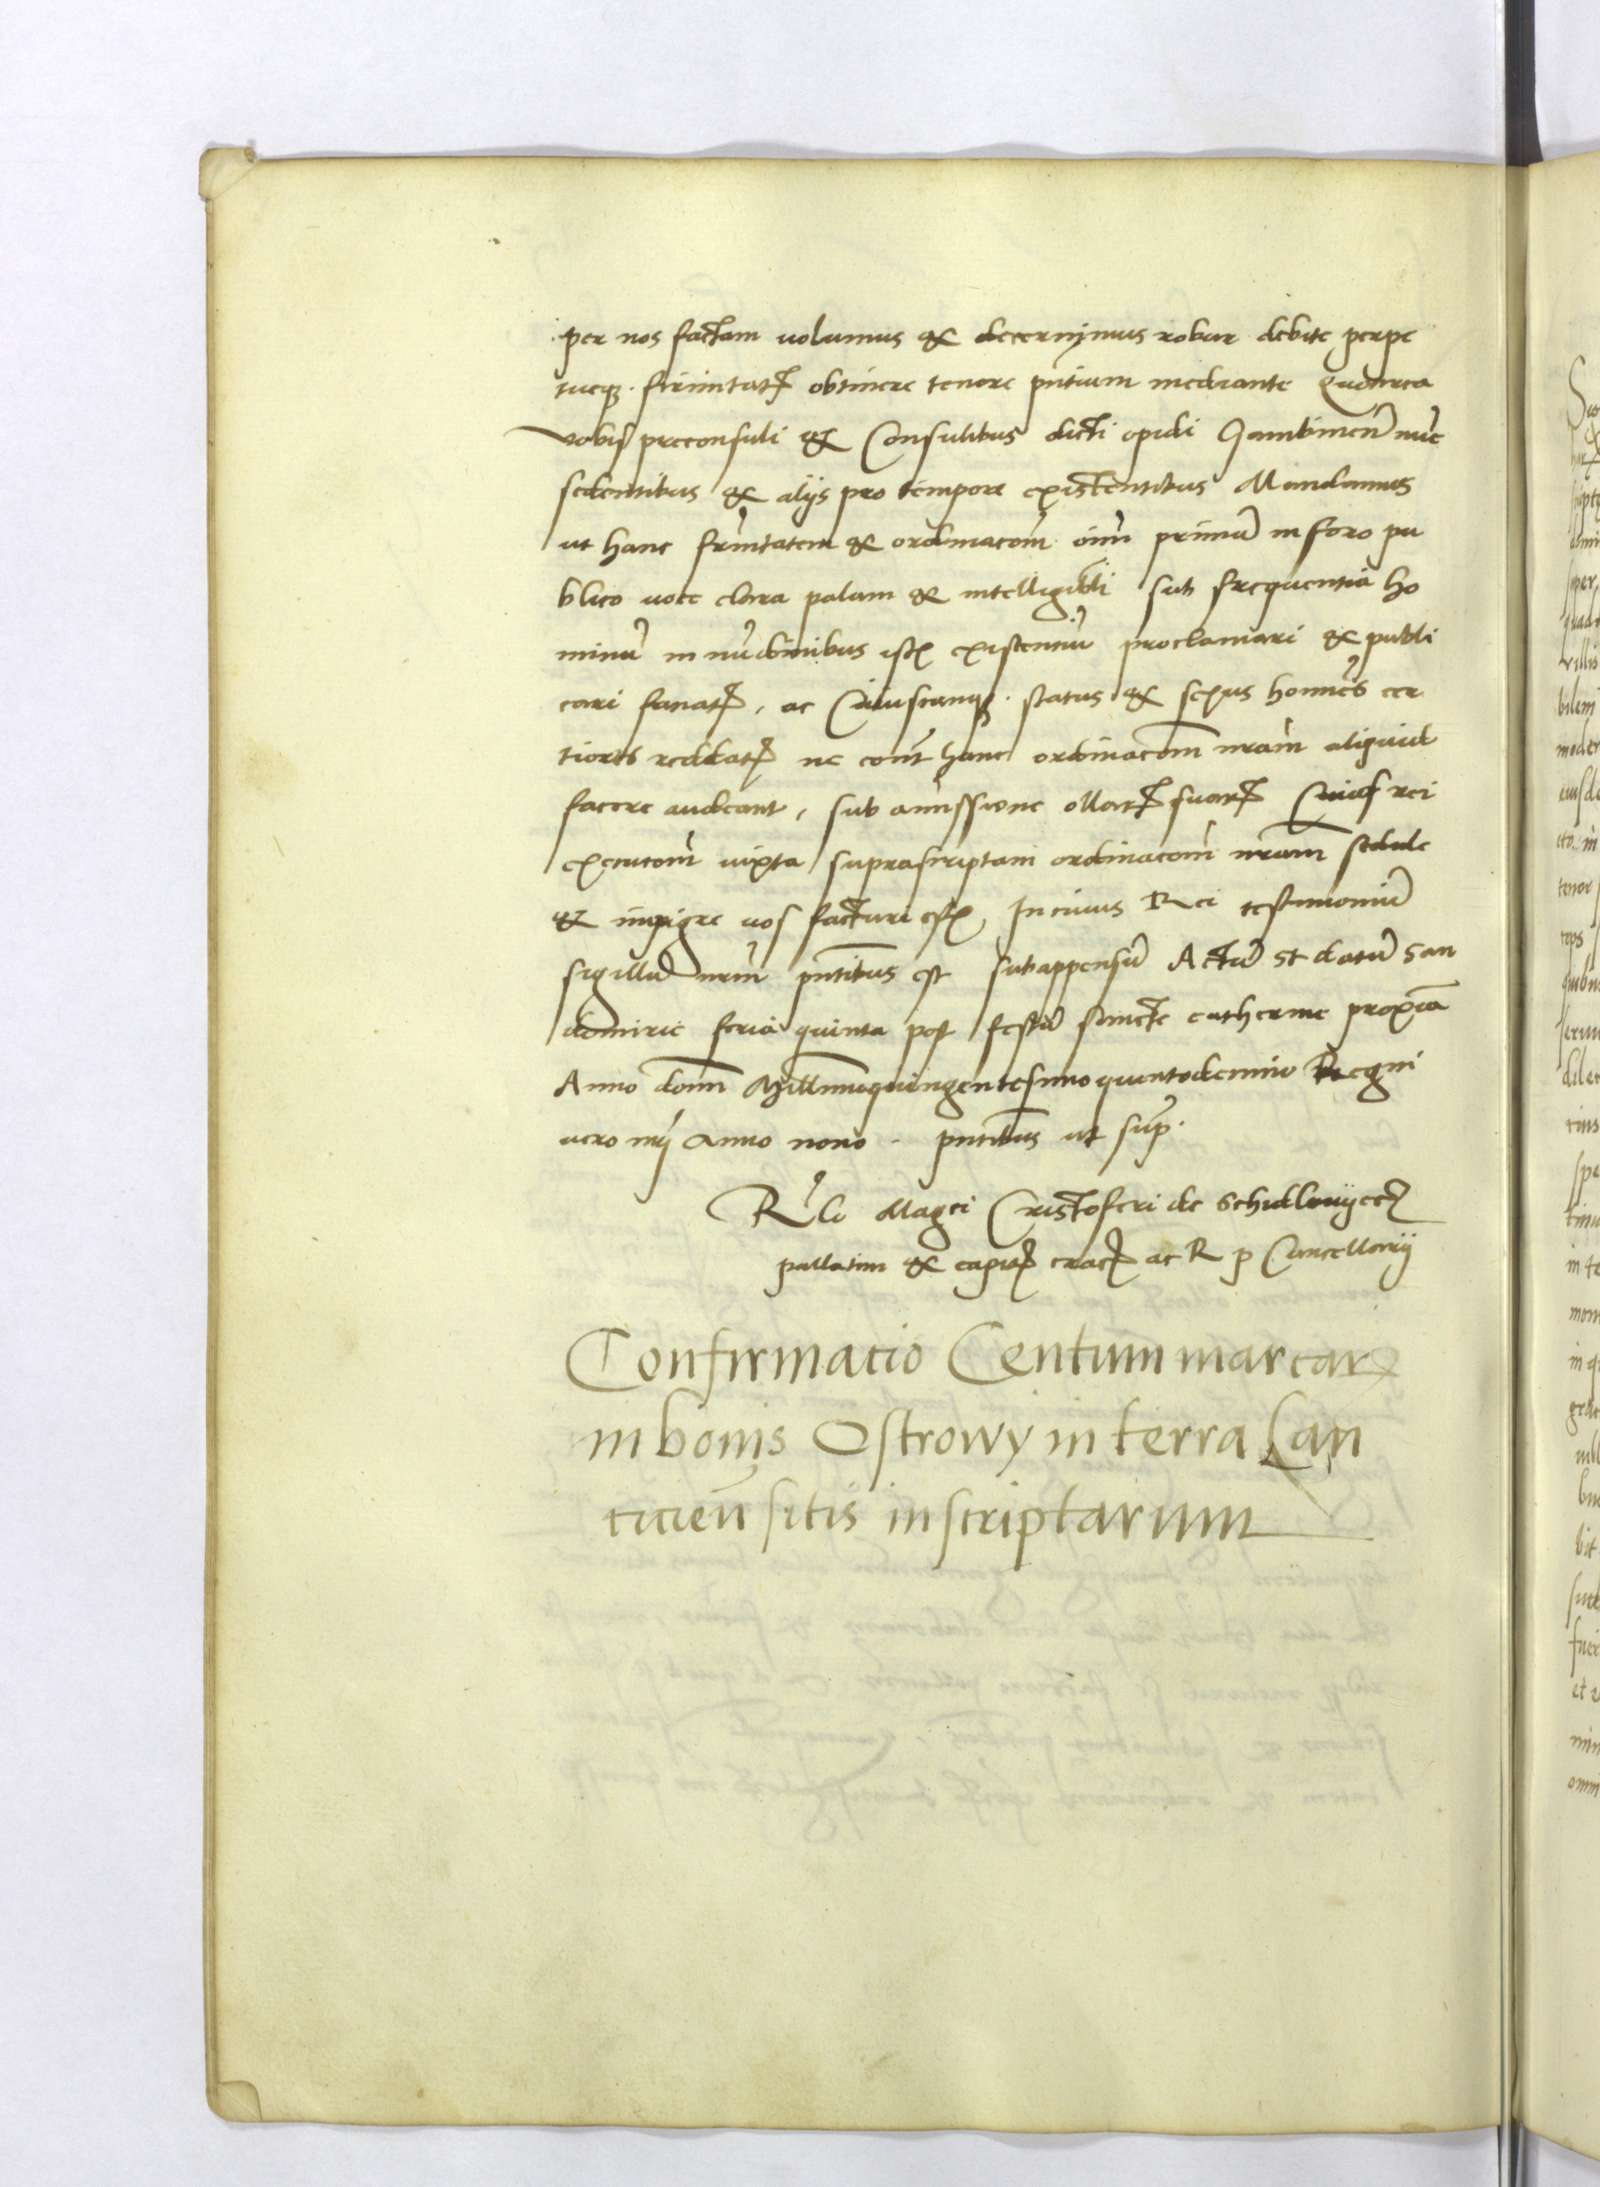 per nos factam volumus & decernimus robur debite perpe
tueq firmitatꝭ obtinere tenore pntium mediante Quocirca
vobis preconsuli & Consulibus dicti opidi Gambinen nuc
sedentibus & alijs pro tempore existentibus Mandamus
ut hanc frmtatem & ordinacom oim primu in foro pu
blico voce clara palam & intelligibli sub frequentia ho
minu in nudinibus istꝭ existenciu proclamari & publi
cari faciatꝭ, ac Cuiuscunqꝫ status & sexus homines cer
tiores reddatꝭ ne cont hanc ordinacom nram aliquid
facere audeant, sub amissione ollarꝝ suarꝝ Cuius rei
executom iuxta suprascriptam ordinacom nram sedule
& impigre vos facturi estꝭ, In cuius Rei testimoniu
sigillu nrm pntibus est subappensu Actu et datu San
domirie feria quinta post festu sancte catherine proxia
Anno domi Millimoquingentesimoquintodecimo Regni
vero nrj anno nono . pntibus ut sup.
Rlo Magci Cristoferi de Schidlovyeczꝭ
pallatini & capitꝭ cracꝭ ac R p Cancellarij
Confirmacio Centum marcarꝝ
in bonis Ostrowy in terra Lan
cicien sitis inscriptarum